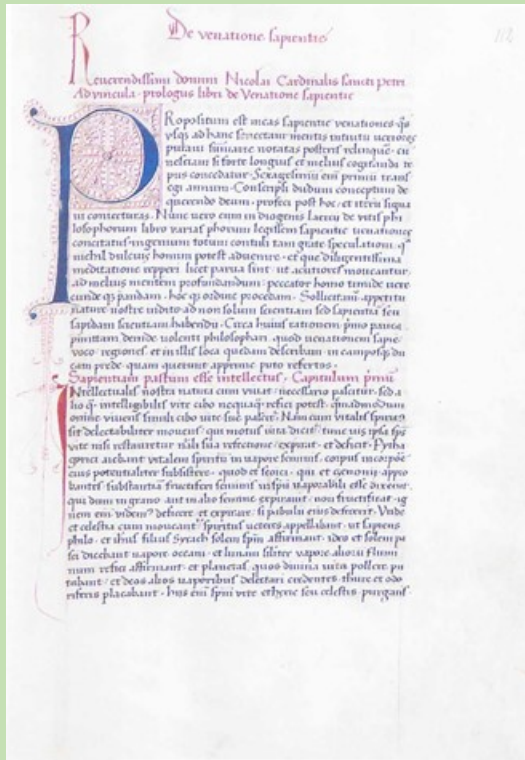 De venatione sapientie
112
Reuerendissimi domini Nicolai Cardinalis sancti petri
Ad vincula · prologus libri de Venatione sapientie
PRopositum est meas sapientie venationes · qs
vsqs ad hanc senectam mentis intuitu ueriores
putaui sumarie notatas posteris relinque · cu
nesciam si forte longius et melius cogitandi te
pus concedatur · Sexagesimu em primu transf
egi annum · Conscripsi dudum conceptum de
querendo deum · profeci post hoc · et iteru signa
ui coniecturas · Nunc uero cum in diogenis laercii de vitis phi
losophorum libro varias phorum legissem sapientie uenationes
concitatus ingenium totum contuli tam grate speculationi · q
nichil dulcius homini potest aduenire · et que diligentissima
meditatione repperi licet parua sint · ut acutiores moueantur
ad melius mentem profundandum · peccator homo timide uere
cunde qs pandam · hoc qs ordine procedam · Sollicitam appetitu
nature nostre indito ad non solum scientiam sed sapientiam seu
sapidam scientiam habendu · Circa huius rationem pmo pauca
pmittam · deinde volenti philosophari · quod uenationem sapie
voco · regiones · et in illis loca quedam describam · in campos qs du
cam prede · quam querunt apprime puto refertos ·
Sapientiam pastum esse intellectus · Capitulum primu
INtellectualis nostra natura cum viuat · necessario pascitur · sed a
lio q intelligibilis vite cibo nequaq refici potest · quadmodum
omne viuens simili cibo vite sue pascit · Nam cum vitalis spiritus
sit delectabiliter moueatur · qui motus uita dicit · tunc uis ipsa sps
vite nisi restauretur nali sua refectione · expirat · et deficit · Pytha
gorici aiebant vitalem spiritu in uapore seminis · corpus in corpore
eius potentialiter subsistere · quod et stoici · qui et cenonii appro
bantes substantia fructiferi seminis in spu uaporabili esse dixerut
qui dum in grano aut in alio semine expirauit · non fructificat · ig
nem em videm deficere et expirare · si pabulu eius defecerit · Vnde
et celestia cum moueant spiritus ueteres appellabant · ut sapiens
philo · et ihus filius Syrach solem spm affirmant · ideo et solem pa
sci dicebant uapore oceani · et lunam similiter vapore aliorum flumi
num refici affirmant · et planetas · quos diuina uita pollere pu
tabant · et deos alios uaporibus delectari credentes · thure et odo
riferis placabant · hiis em spui vite etheree seu celestis · purgans